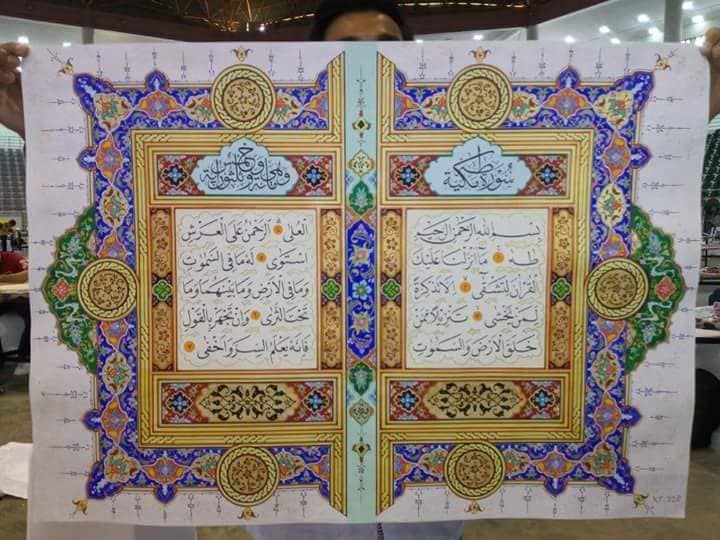 سُورَةُ طٰهٰ مَكِّيَّة
بِسْمِ اللهِ الرَّحْمٰنِ الرَّحِيْمِ
طٰهٰ ۝ مَآ اَنْزَلْنَا عَلَيْكَ
الْقُرْاٰنَ لِتَشْقٰٓى ۝ اِلَّا تَذْكِرَةً
لِّمَنْ يَّخْشٰى ۝ تَنْزِيْلًا مِّمَّنْ
خَلَقَ الْاَرْضَ وَالسَّمٰوٰتِ
الْعُلٰى ۝ اَلرَّحْمٰنُ عَلَى الْعَرْشِ
اسْتَوٰى ۝ لَهٗ مَا فِى السَّمٰوٰتِ
وَمَا فِى الْاَرْضِ وَمَا بَيْنَهُمَا وَمَا
تَحْتَ الثَّرٰى ۝ وَاِنْ تَجْهَرْ بِالْقَوْلِ
فَاِنَّهٗ يَعْلَمُ السِّرَّ وَاَخْفٰى ۝